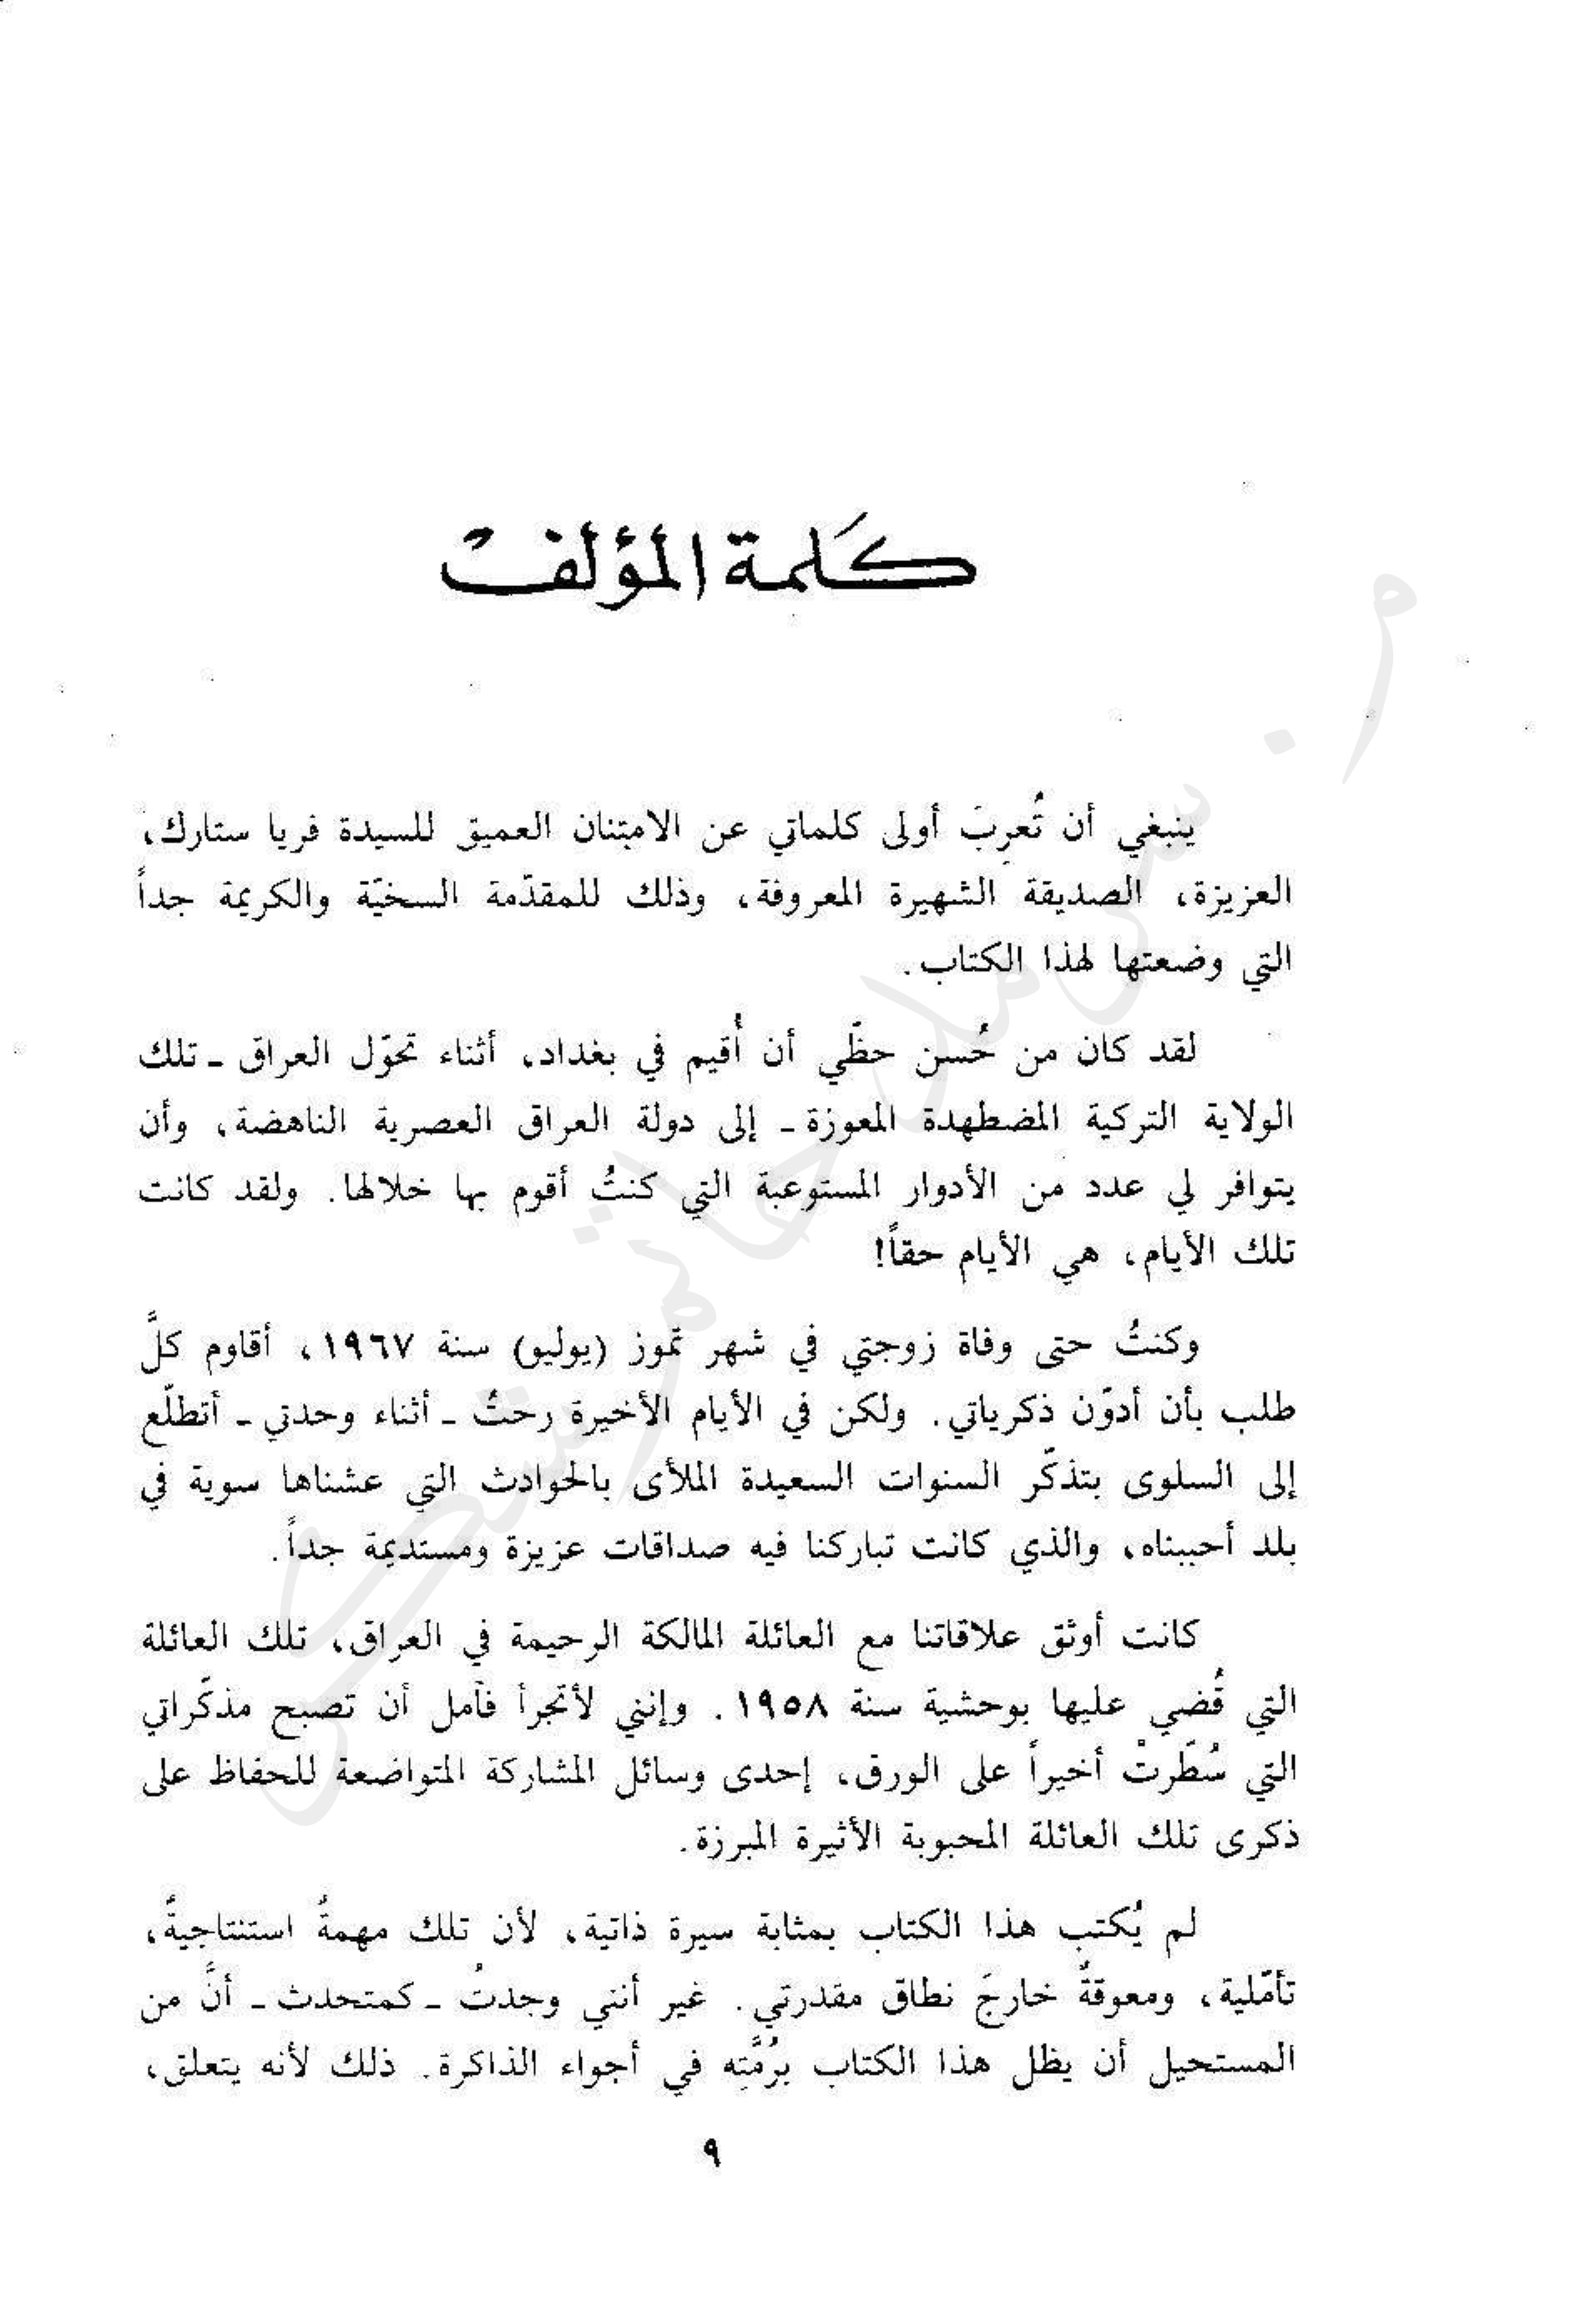 كلمة المؤلف
ينبغي أن تُعرِبَ أولى كلماتي عن الامتنان العميق للسيدة فريا ستارك،
العزيزة، الصديقة الشهيرة المعروفة، وذلك للمقدّمة السخيّة والكريمة جداً
التي وضعتها لهذا الكتاب.
لقد كان من حُسن حظّي أن أُقيم في بغداد، أثناء تحوّل العراق ـ تلك
الولاية التركية المضطهدة المعوزة ـ إلى دولة العراق العصرية الناهضة، وأن
يتوافر لي عدد من الأدوار المستوعبة التي كنتُ أقوم بها خلالها. ولقد كانت
تلك الأيام، هي الأيام حقاً!
وكنتُ حتى وفاة زوجتي في شهر تموز (يوليو) سنة ١٩٦٧، أقاوم كلَّ
طلب بأن أدوّن ذكرياتي. ولكن في الأيام الأخيرة رحتُ ـ أثناء وحدتي ـ أتطلّع
إلى السلوى بتذكّر السنوات السعيدة الملأى بالحوادث التي عشناها سوية في
بلد أحببناه، والذي كانت تباركنا فيه صداقات عزيزة ومستديمة جداً.
كانت أوثق علاقاتنا مع العائلة المالكة الرحيمة في العراق، تلك العائلة
التي قُضي عليها بوحشية سنة ١٩٥٨. وإنني لأتجرأ فآمل أن تصبح مذكّراتي
التي سُطّرتْ أخيراً على الورق، إحدى وسائل المشاركة المتواضعة للحفاظ على
ذكرى تلك العائلة المحبوبة الأثيرة المبرزة.
لم يُكتب هذا الكتاب بمثابة سيرة ذاتية، لأن تلك مهمةٌ استنتاجيةٌ،
تأمّلية، ومعوقةٌ خارجَ نطاق مقدرتي. غير أنني وجدتُ ـ كمتحدث ـ أنَّ من
المستحيل أن يظل هذا الكتاب برُمَّتِه في أجواء الذاكرة. ذلك لأنه يتعلق،
٩